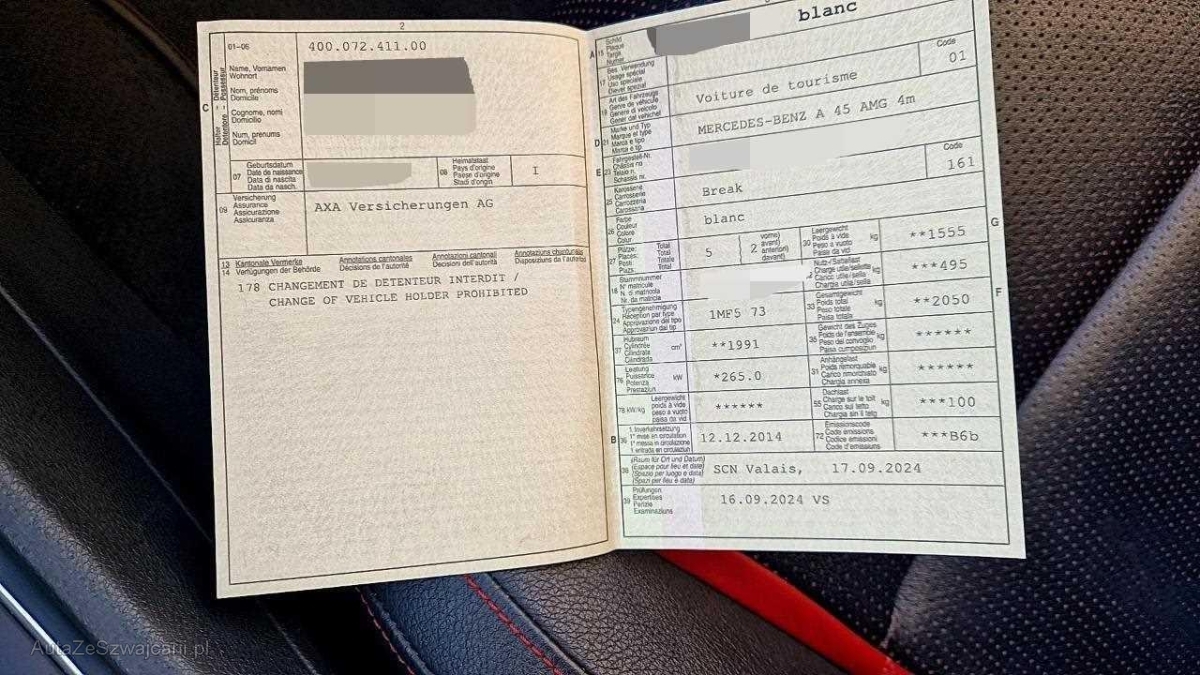 2
01-06
400.072.411.00
C
Halter - Détenteur
Detentore - Possessur
Name, Vornamen
Wohnort
Nom, prénoms
Domicile
Cognome, nomi
Domicilio
Num, prenums
Domicil
07
Geburtsdatum
Date de naissance
Data di nascita
Data da nasch.
08
Heimatstaat
Pays d'origine
Paese d'origine
Stadi d'origin
I
09
Versicherung
Assurance
Assicurazione
Assicuranza
AXA Versicherungen AG
13 Kantonale Vermerke
14 Verfügungen der Behörde
Annotations cantonales
Décisions de l'autorité
Annotazioni cantonali
Decisioni dell'autorità
Annotaziuns chantunalas
Disposiziuns da l'autoritad
178 CHANGEMENT DE DETENTEUR INTERDIT /
CHANGE OF VEHICLE HOLDER PROHIBITED
blanc
A
15
Schild
Plaque
Targa
Numer
17
Bes. Verwendung
Usage spécial
Uso speciale
Diever spezial
Code
01
19
Art des Fahrzeugs
Genre de véhicule
Genere di veicolo
Gener dal vehichel
Voiture de tourisme
D
21
Marke und Typ
Marque et type
Marca e tipo
Marca e tip
MERCEDES-BENZ A 45 AMG 4m
E
23
Fahrgestell-Nr.
Châssis no
Telaio n.
Schassis nr.
Code
161
25
Karosserie
Carrosserie
Carrozzeria
Carossaria
Break
26
Farbe
Couleur
Colore
Colur
blanc
27
Plätze: Total
Places: Total
Posti: Totale
Plazs: Total
5
2
vorne)
avant)
anteriori)
davant)
30
Leergewicht
Poids à vide
Peso a vuoto
Paisa da vid
kg
**1555
G
18
Stammnummer
N° matricule
N. di matricola
Nr. da matricla
Nutz-/Sattellast
Charge utile/sellette
Carico utile/sella
Chargia utila/sella
kg
***495
24
Typengenehmigung
Réception par type
Approvazione del tipo
Approvaziun dal tip
1MF5 73
33
Gesamtgewicht
Poids total
Peso totale
Paisa totala
kg
**2050
F
37
Hubraum
Cylindrée
Cilindrata
Cilindrada
cm³
**1991
35
Gewicht des Zuges
Poids de l'ensemble
Peso del convoglio
Paisa cumposiziun
kg
******
76
Leistung
Puissance
Potenza
Prestaziun
kW
*265.0
31
Anhängelast
Poids remorquable
Carico rimorchiato
Chargia annexa
kg
******
78 kW/kg
Leergewicht
poids à vide
peso a vuoto
paisa da vid
******
55
Dachlast
Charge sur le toit
Carico sul tetto
Chargia sin il tetg
kg
***100
B
36
1. Inverkehrsetzung
1re mise en circulation
1a messa in circolazione
1. entrada en circulaziun
12.12.2014
72
Emissionscode
Code émissions
Codice emissioni
Code d'emissiuns
***B6b
38
(Raum für Ort und Datum)
(Espace pour lieu et date)
(Spazio per luogo e data)
(Spazi per lieu e data)
SCN Valais, 17.09.2024
39
Prüfungen
Expertises
Perizie
Examinaziuns
16.09.2024 VS
AutaZeSzwajcarii.pl